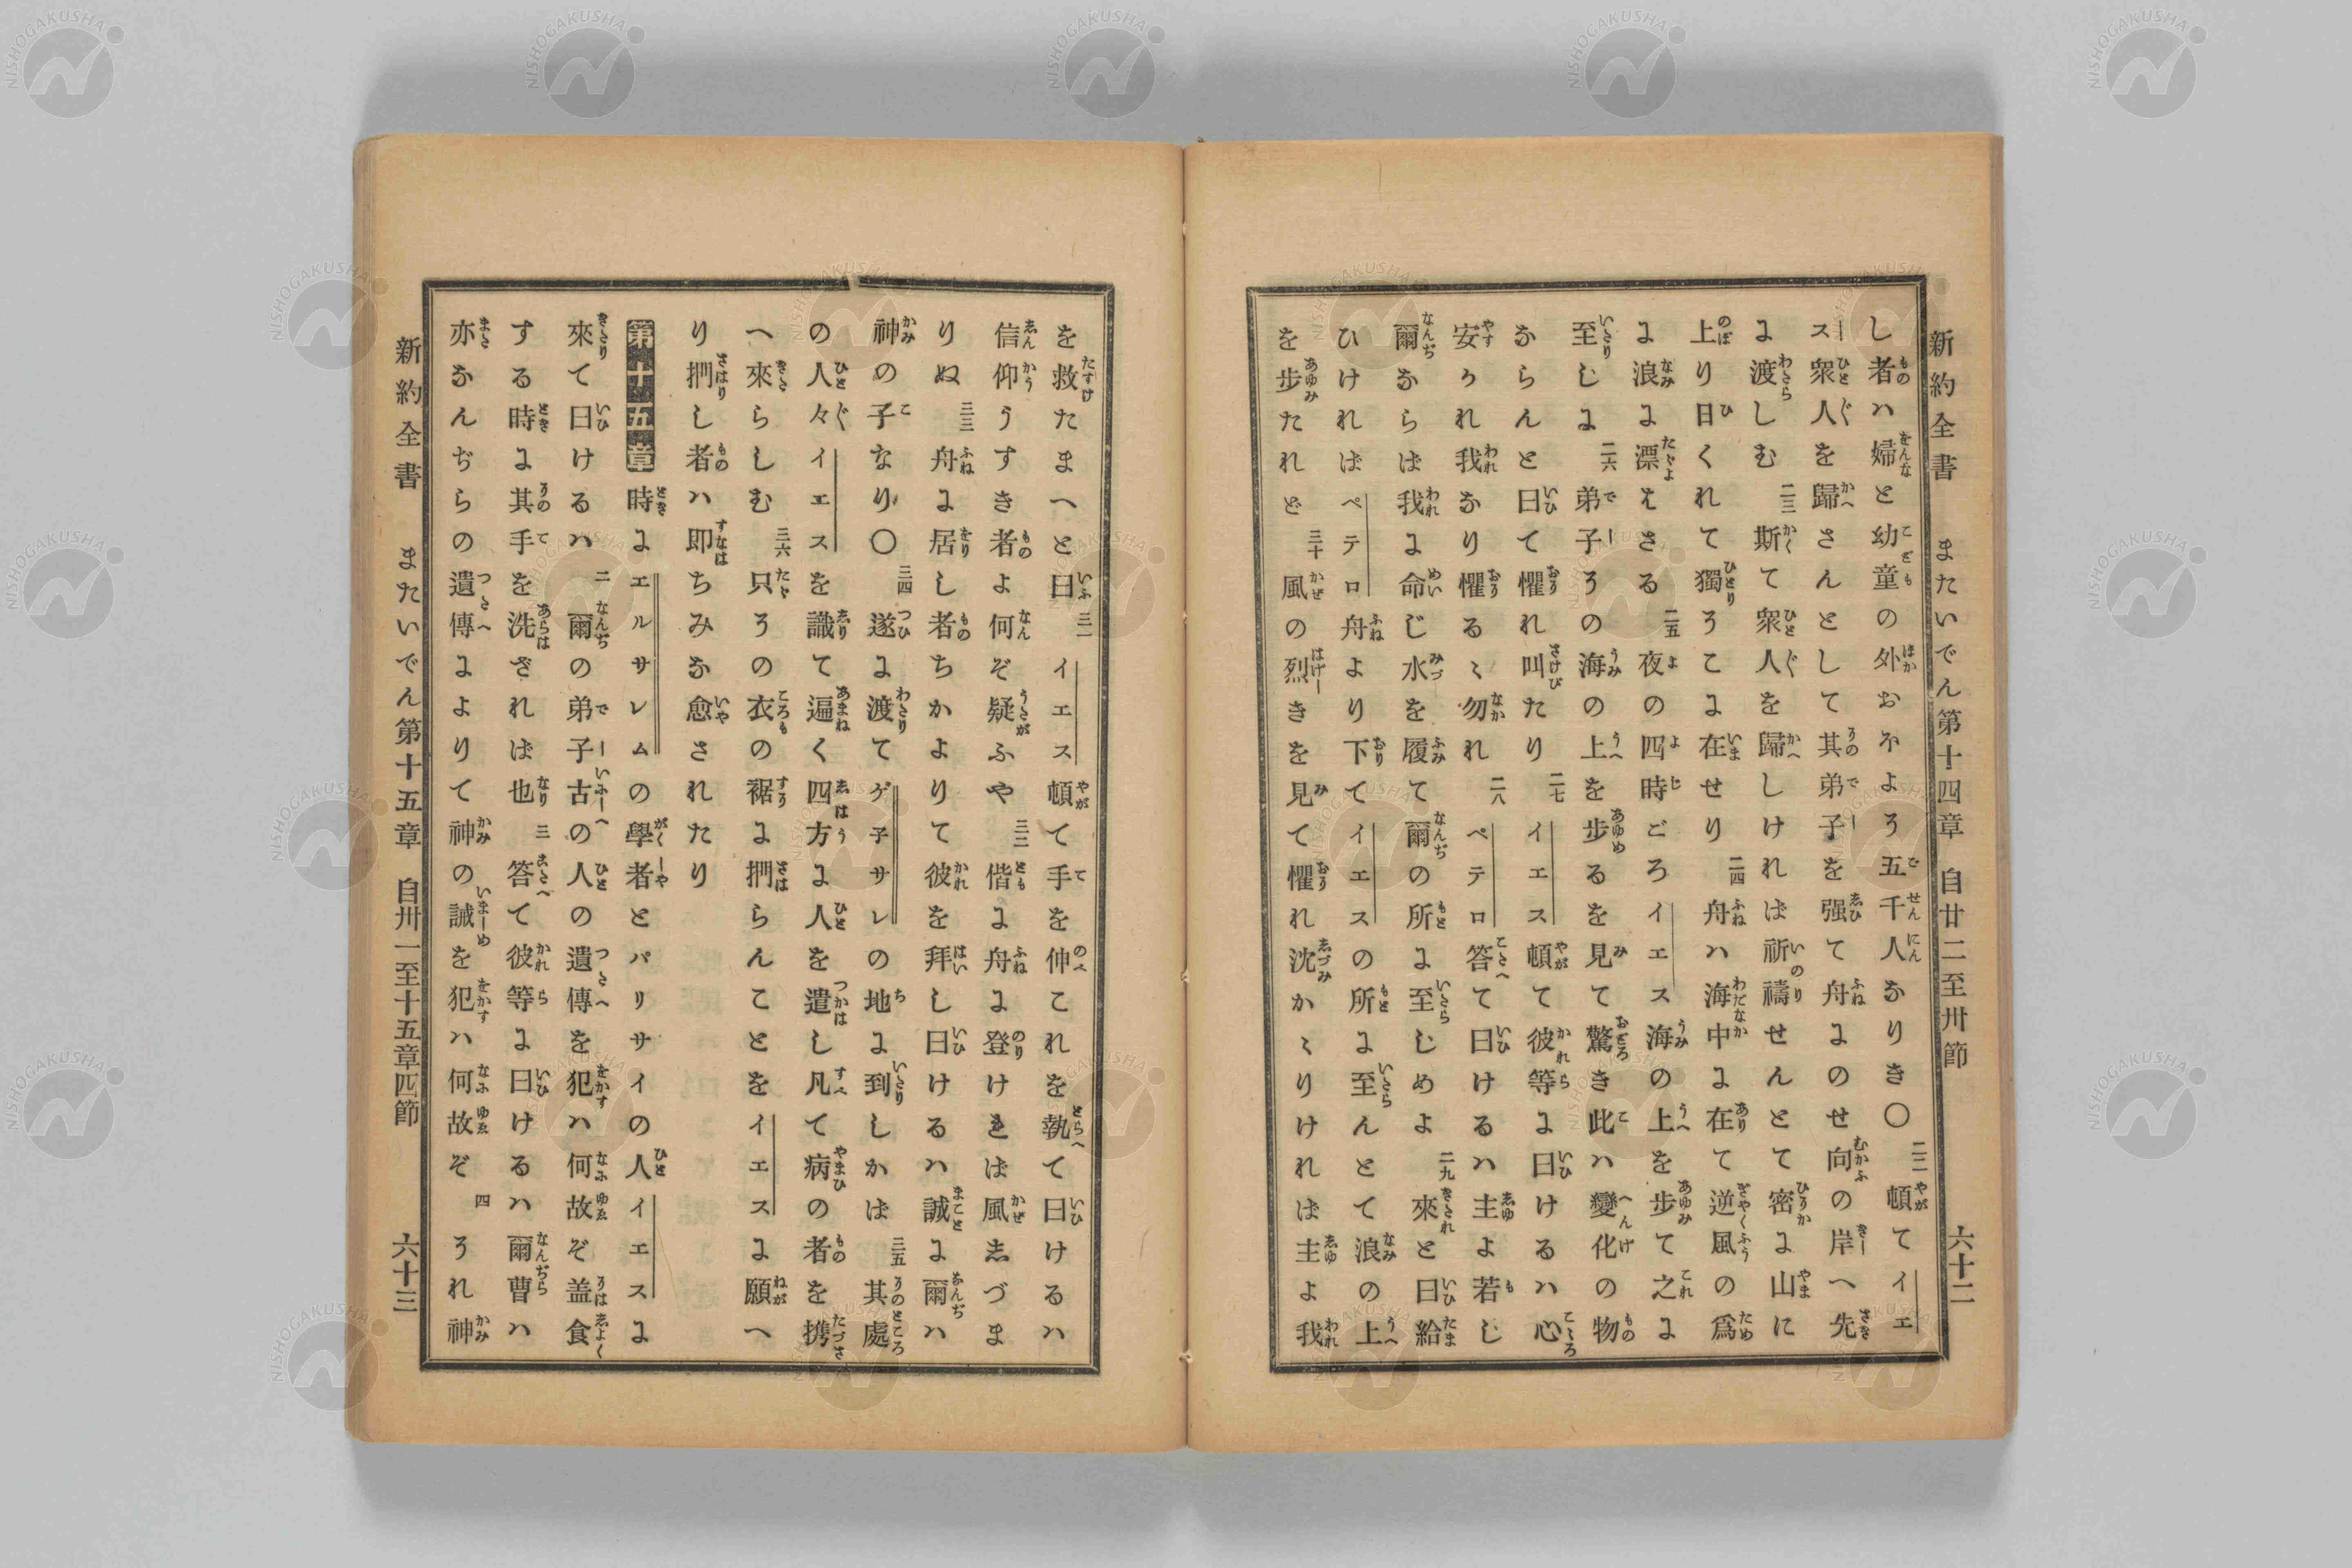 新約全書　またいでん第十四章　自廿二至卅節　六十二
し者ハ婦と幼童の外おおよそ五千人なりき〇二二頓てイエ
ス衆人を歸さんとして其弟子を强て舟にのせ向の岸へ先
に渡しむ二三斯て衆人を歸しければ祈禱せんとて密に山に
上り日くれて獨そこに在せり二四舟ハ海中に在て逆風の爲
に浪に漂えさる二五夜の四時ごろイエス海の上を歩て之に
至しに二六弟子その海の上を歩るを見て驚き此ハ變化の物
ならんと曰て懼れ叫たり二七イエス頓て彼等に曰けるハ心
安かれ我なり懼るゝ勿れ二八ペテロ答て曰けるハ主よ若し
爾ならば我に命じ水を履て爾の所に至しめよ二九來と曰給
ひければペテロ舟より下てイエスの所に至んとて浪の上
を歩たれど三十風の烈きを見て懼れ沈かゝりければ主よ我
を救たまへと曰三一イエス頓て手を伸これを執て曰けるハ
信仰うすき者よ何ぞ疑ふや三二偕に舟に登ければ風しづま
りぬ三三舟に居し者ちかよりて彼を拜し曰けるハ誠に爾ハ
神の子なり〇三四遂に渡てゲ子サレの地に到しかば三五其處
の人々イエスを識て遍く四方に人を遣し凡て病の者を携
へ來らしむ三六只その衣の裾に捫らんことをイエスに願へ
り捫し者ハ即ちみな愈されたり
第十五章　時にエルサレムの學者とパリサイの人イエスに
來て曰けるハ二爾の弟子古の人の遺傳を犯ハ何故ぞ盖食
する時に其手を洗ざれば也三答て彼等に曰けるハ爾曹ハ
亦なんぢらの遺傳によりて神の誡を犯ハ何故ぞ四それ神
新約全書　またいでん第十五章　自卅一至十五章四節　六十三